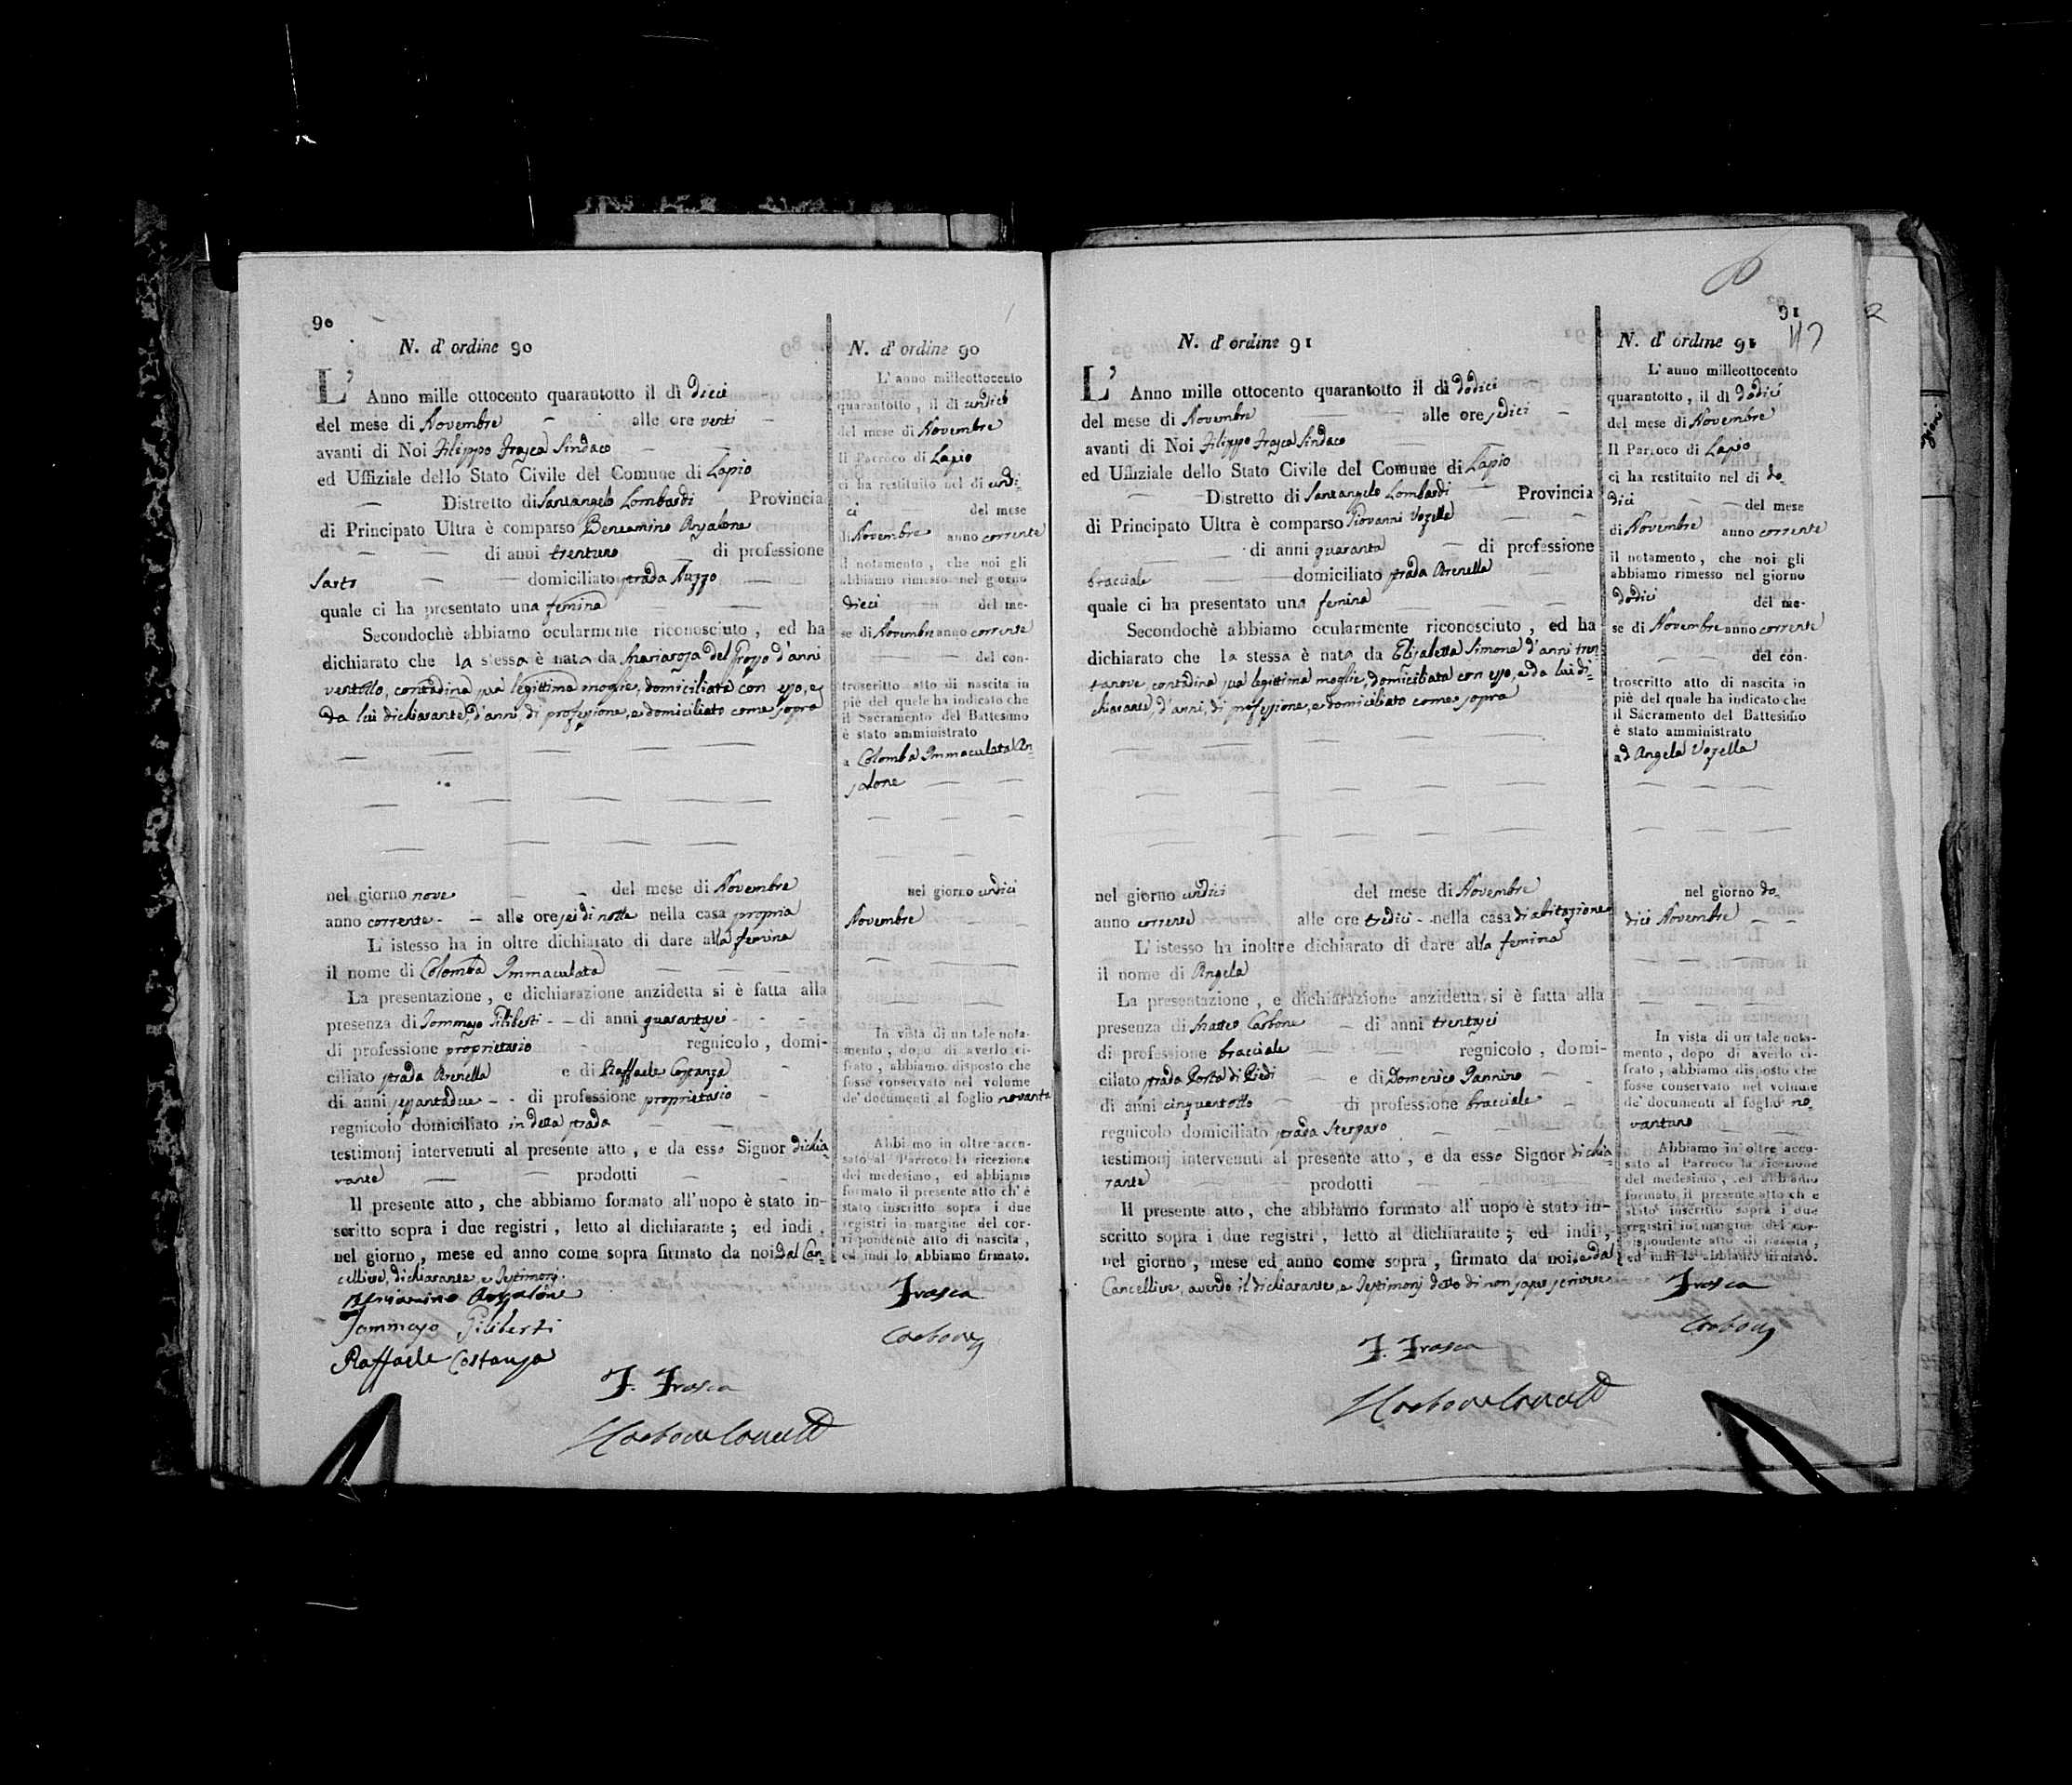 90
N. d' ordine 90
L' Anno mille ottocento quarantotto il dì dieci
del mese di Novembre alle ore venti
avanti di Noi Filippo Frasca Sindaco
ed Uffiziale dello Stato Civile del Comune di Lapio
Distretto di Santangelo Lombardi Provincia
di Principato Ultra è comparso Beneamino Ansalone
di anni trentuno di professione
Sarto domiciliato strada Ruzzo
quale ci ha presentato una femina
Secondochè abbiamo ocularmente riconosciuto, ed ha
dichiarato che la stessa è nata da Mariarosa del Grosso d'anni
ventotto, contadina sua legittima moglie, domiciliata con esso, e
da lui dichiarante, d'anni, di professione, e domiciliato come sopra
nel giorno nove del mese di Novembre
anno corrente alle ore sei di notte nella casa propria
L' istesso ha in oltre dichiarato di dare alla femina
il nome di Colomba Immaculata
La presentazione, e dichiarazione anzidetta si è fatta alla
presenza di Tommaso Giliberti di anni quarantasei
di professione proprietario regnicolo, domi-
ciliato strada Brenella e di Raffaele Costanza
di anni sessantadue di professione proprietario
regnicolo domiciliato in detta strada
testimonj intervenuti al presente atto, e da esso Signor dichia-
rante prodotti
Il presente atto, che abbiamo formato all'uopo è stato in-
scritto sopra i due registri, letto al dichiarante; ed indi,
nel giorno, mese ed anno come sopra firmato da noi dal Can-
celliere, dichiarante, e Testimonj.
Beniamino Ansalone
Tommaso Giliberti
Raffaele Costanza
F. Frasca
N. d' ordine 90
L' anno milleottocento
quarantotto, il dì undici
del mese di Novembre
Il Parroco di Lapio
ci ha restituito nel dì undi-
ci del mese
di Novembre anno corrente
il notamento, che noi gli
abbiamo rimesso nel giorno
dieci del me-
se di Novembre anno corrente
del con-
troscritto atto di nascita in
piè del quale ha indicato che
il Sacramento del Battesimo
è stato amministrato
a Colomba Immaculata An-
salone
nel giorno undici
Novembre
In vista di un tale nota-
mento, dopo di averlo ci-
frato, abbiamo disposto che
fosse conservato nel volume
de' documenti al foglio novanta
Abbiamo in oltre accu-
sato al Parroco la ricezione
del medesimo, ed abbiamo
formato il presente atto ch' è
stato inscritto sopra i due
registri in margine del cor-
rispondente atto di nascita,
ed indi lo abbiamo firmato.
Frasca
Carbone
91
117
N. d' ordine 91
L' Anno mille ottocento quarantotto il dì dodici
del mese di Novembre alle ore sedici
avanti di Noi Filippo Frasca Sindaco
ed Uffiziale dello Stato Civile del Comune di Lapio
Distretto di Santangelo Lombardi Provincia
di Principato Ultra è comparso Giovanni Vozella
di anni quaranta di professione
bracciale domiciliato strada Brenella
quale ci ha presentato una femina
Secondochè abbiamo ocularmente riconosciuto, ed ha
dichiarato che la stessa è nata da Elisabetta Simone d'anni tren-
tanove, contadina sua legittima moglie, domiciliata con esso, e da lui di-
chiarante, d'anni, di professione, e domiciliato come sopra
nel giorno undici del mese di Novembre
anno corrente alle ore tredici nella casa di abitazione
L' istesso ha inoltre dichiarato di dare alla femina
il nome di Angela
La presentazione, e dichiarazione anzidetta si è fatta alla
presenza di Matteo Carbone di anni trentasei
di professione bracciale regnicolo, domi-
cilato strada Porta di Piedi e di Domenico Iannino
di anni cinquantotto di professione bracciale
regnicolo domiciliato strada Sterparo
testimonj intervenuti al presente atto, e da esso Signor dichia-
rante prodotti
Il presente atto, che abbiamo formato all' uopo è stato in-
scritto sopra i due registri, letto al dichiarante; ed indi,
nel giorno, mese ed anno come sopra, firmato da noi, e dal
Cancelliere, avendo il dichiarante, e Testimonj detto di non saper scrivere
F. Frasca
N. d' ordine 91
L' anno milleottocento
quarantotto, il dì dodici
del mese di Novembre
Il Parroco di Lapio
ci ha restituito nel dì do-
dici del mese
di Novembre anno corrente
il notamento, che noi gli
abbiamo rimesso nel giorno
dodici del me-
se di Novembre anno corrente
del con-
troscritto atto di nascita in
piè del quale ha indicato che
il Sacramento del Battesimo
è stato amministrato
ad Angela Vozella
nel giorno do-
dici Novembre
In vista di un tale nota-
mento, dopo di averlo ci-
frato, abbiamo disposto che
fosse conservato nel volume
de' documenti al foglio no-
vantuno
Abbiamo in oltre accu-
sato al Parroco la ricezione
del medesimo, ed abbiamo
formato il presente atto ch' è
stato inscritto sopra i due
registri in margine del cor-
rispondente atto di nascita,
ed indi lo abbiamo firmato.
Frasca
Carbone